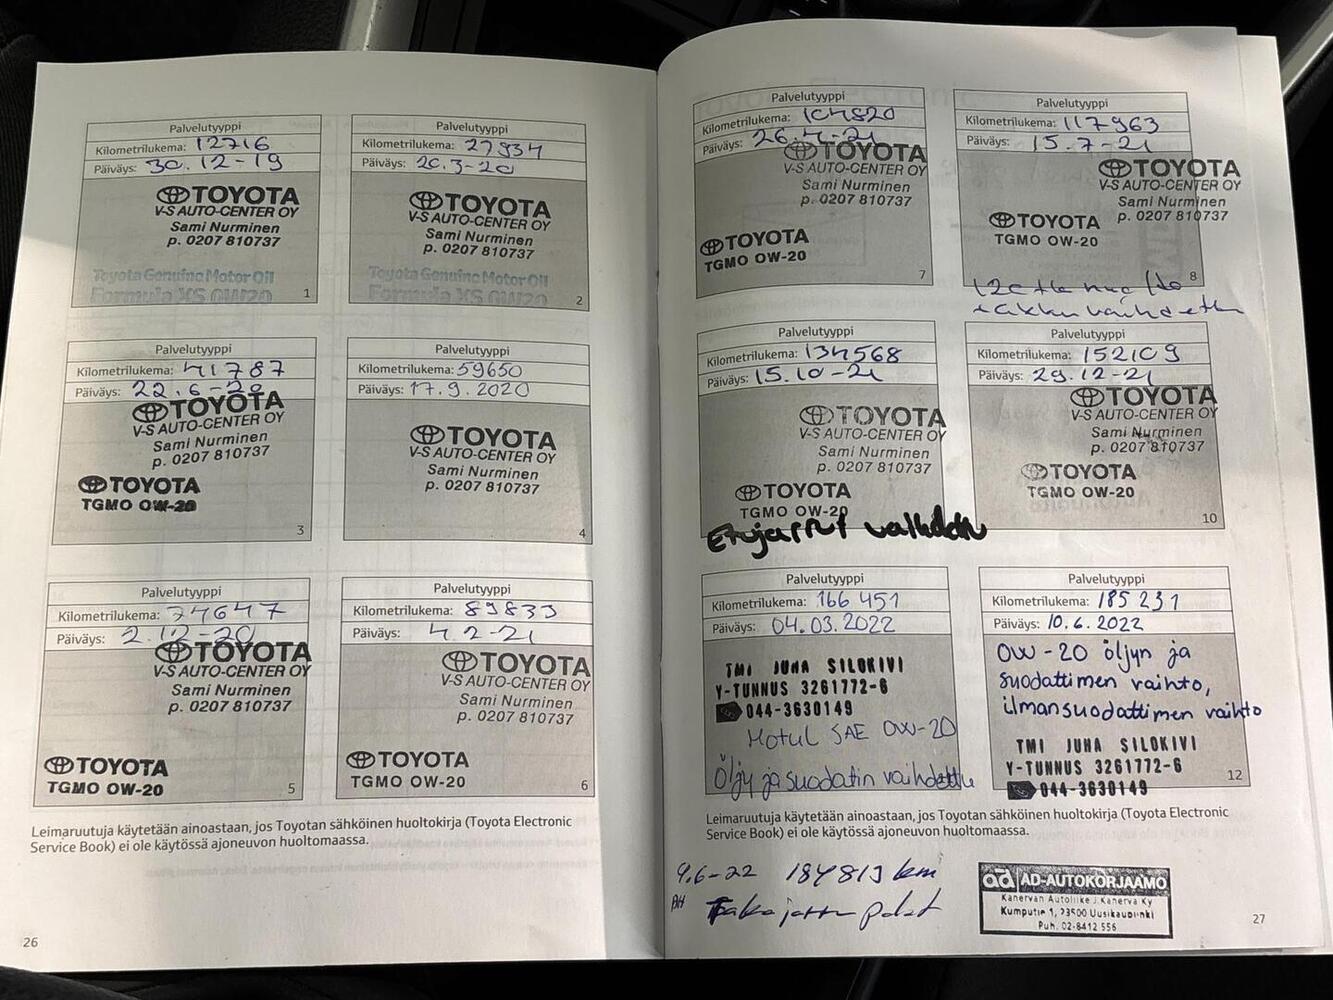 Palvelutyyppi
Kilometrilukema: 12716
Päiväys: 30.12-19
TOYOTA
V-S AUTO-CENTER OY
Sami Nurminen
p. 0207 810737
Toyota Genuine Motor Oil
Formula XS 0W20
1
Palvelutyyppi
Kilometrilukema: 27934
Päiväys: 20.3-20
TOYOTA
V-S AUTO-CENTER OY
Sami Nurminen
p. 0207 810737
Toyota Genuine Motor Oil
Formula XS 0W20
2
Palvelutyyppi
Kilometrilukema: 41787
Päiväys: 22.6-20
TOYOTA
V-S AUTO-CENTER OY
Sami Nurminen
p. 0207 810737
TOYOTA
TGMO OW-20
3
Palvelutyyppi
Kilometrilukema: 59650
Päiväys: 17.9.2020
TOYOTA
V-S AUTO-CENTER OY
Sami Nurminen
p. 0207 810737
4
Palvelutyyppi
Kilometrilukema: 74647
Päiväys: 2.12-20
TOYOTA
V-S AUTO-CENTER OY
Sami Nurminen
p. 0207 810737
TOYOTA
TGMO OW-20
5
Palvelutyyppi
Kilometrilukema: 89833
Päiväys: 4.2-21
TOYOTA
V-S AUTO-CENTER OY
Sami Nurminen
p. 0207 810737
TOYOTA
TGMO OW-20
6
Leimaruutuja käytetään ainoastaan, jos Toyotan sähköinen huoltokirja (Toyota Electronic
Service Book) ei ole käytössä ajoneuvon huoltomaassa.
26
Palvelutyyppi
Kilometrilukema: 104820
Päiväys: 26.4-21
TOYOTA
V-S AUTO-CENTER OY
Sami Nurminen
p. 0207 810737
TOYOTA
TGMO OW-20
7
Palvelutyyppi
Kilometrilukema: 117963
Päiväys: 15.7-21
TOYOTA
V-S AUTO-CENTER OY
Sami Nurminen
p. 0207 810737
TOYOTA
TGMO OW-20
8
Palvelutyyppi
Kilometrilukema: 134568
Päiväys: 15.10-21
TOYOTA
V-S AUTO-CENTER OY
Sami Nurminen
p. 0207 810737
TOYOTA
TGMO OW-20
Etujarrut vaihdettu
Palvelutyyppi
Kilometrilukema: 152109
Päiväys: 29.12-21
TOYOTA
V-S AUTO-CENTER OY
Sami Nurminen
p. 0207 810737
TOYOTA
TGMO OW-20
10
Palvelutyyppi
Kilometrilukema: 166 451
Päiväys: 04.03.2022
TMI JUHA SILOKIVI
Y-TUNNUS 3261772-6
044-3630149
Motul SAE OW-20
Öljy ja suodatin vaihdettu
Palvelutyyppi
Kilometrilukema: 185 231
Päiväys: 10.6.2022
OW-20 öljyn ja
suodattimen vaihto,
ilmansuodattimen vaihto
TMI JUHA SILOKIVI
Y-TUNNUS 3261772-6
044-3630149
12
Leimaruutuja käytetään ainoastaan, jos Toyotan sähköinen huoltokirja (Toyota Electronic
Service Book) ei ole käytössä ajoneuvon huoltomaassa.
9.6-22 184813 km
PH
AD-AUTOKORJAAMO
Kanervan Autoliike J.Kanerva Ky
Kumputie 1, 23500 Uusikaupunki
Puh. 02-8412 556
27